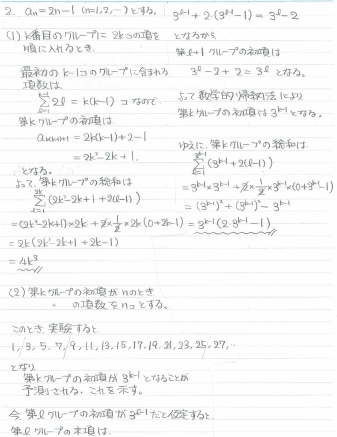 2. aₙ=2n-1 (n=1,2,…)とする。
(1) k番目のグループに 2kコの項を
順に入れるとき、
最初の k-1コのグループに含まれる
項数は
Σ_{l=1}^{k-1} 2l = k(k-1) コ なので
第kグループの初項は
a_{k(k-1)+1} = 2k(k-1)+2-1
= 2k²-2k+1.
となる。
よって、第kグループの総和は
Σ_{l=1}^{2k} (2k²-2k+1+2(l-1))
=(2k²-2k+1)×2k+2×1/2×2k(0+2k-1)
=2k(2k²-2k+1+2k-1)
=4k³
(2) 第kグループの初項が nのとき
〃 の項数を nコとする。
このとき、実験すると
1, 3, 5, 7, 9, 11, 13, 15, 17, 19, 21, 23, 25, 27, …
となり
第kグループの初項が 3^{k-1} となることが
予測される。これを示す。
今、第lグループの初項が 3^{l-1} だと仮定すると
第lグループの末項は
3^{l-1}+2・(3^{l-1}-1)=3^l-2
となるから、
第l+1グループの初項は
3^l-2+2=3^l となる。
よって数学的帰納法により
第kグループの初項は 3^{k-1} となる。
ゆえに、第kグループの総和は
Σ_{l=1}^{3^{k-1}} (3^{k-1}+2(l-1))
=3^{k-1}×3^{k-1}+2×1/2×3^{k-1}×(0+3^{k-1}-1)
=(3^{k-1})²+(3^{k-1})²-3^{k-1}
=3^{k-1}(2・3^{k-1}-1)